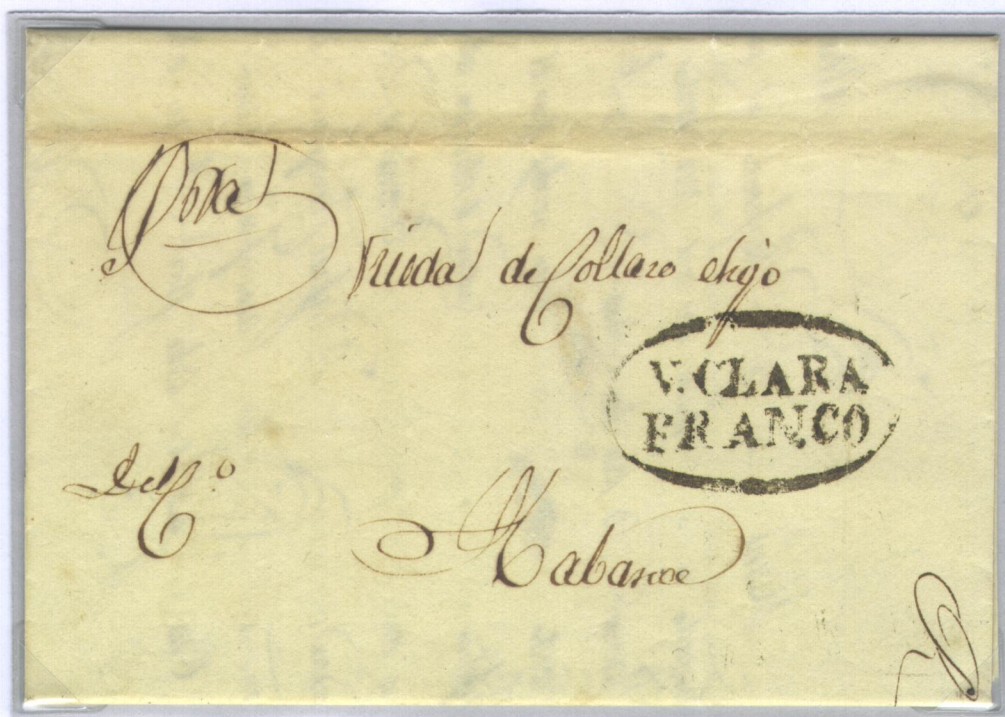 Viuda de Collazo ehijo
V. CLARA
FRANCO
Del C.º
Habana